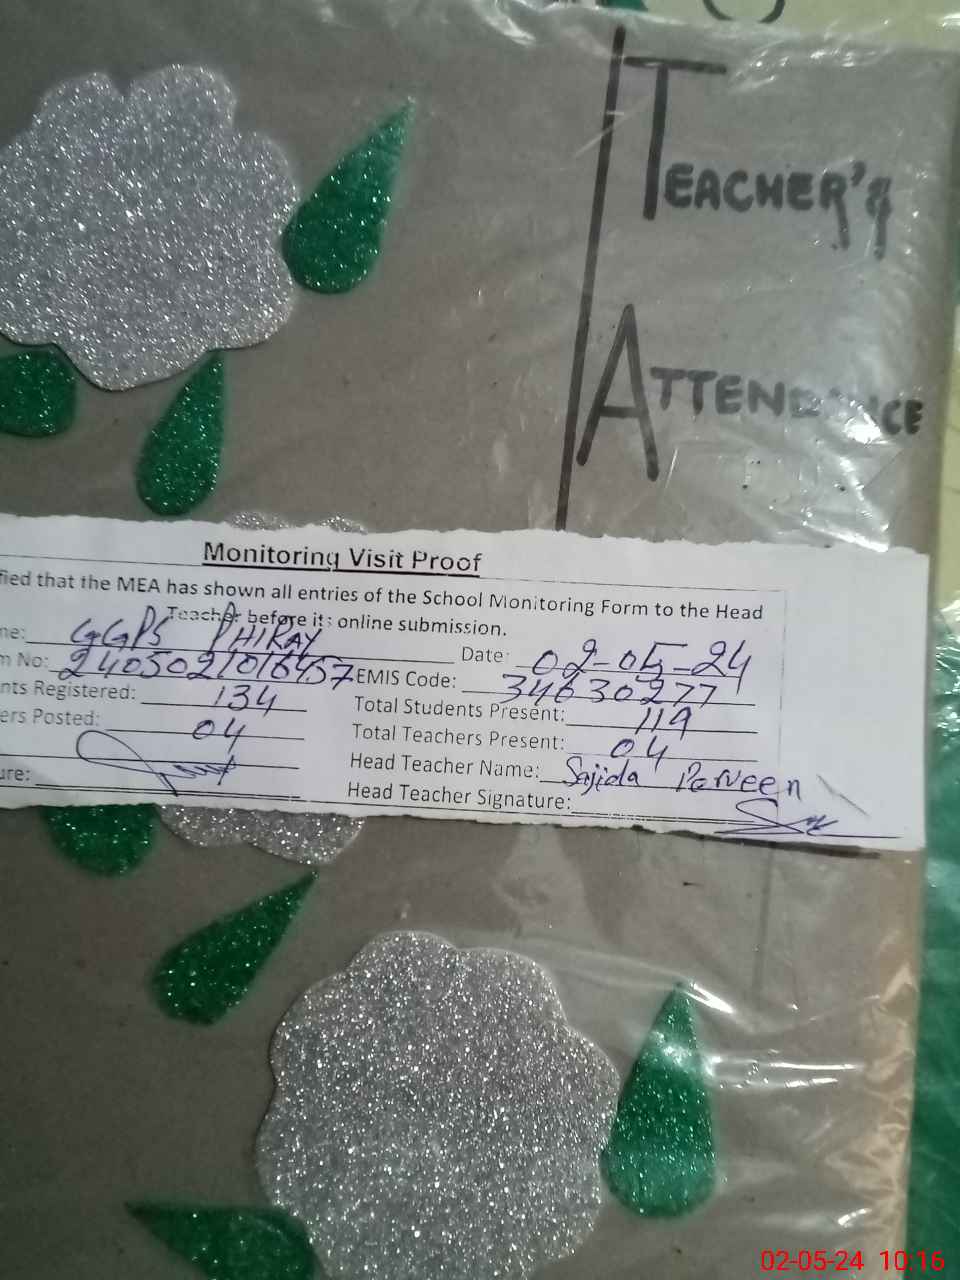 TEACHER'S
ATTENDANCE
Monitoring Visit Proof
fied that the MEA has shown all entries of the School Monitoring Form to the Head
Teacher before its online submission.
me: GGPS PHIRAY Date: 02-05-24
m No: EMIS Code: 34630277
nts Registered: 134 Total Students Present: 119
ers Posted: 04 Total Teachers Present: 04
Head Teacher Name: Sajida Parveen
ure: Head Teacher Signature:
02-05-24 10:16